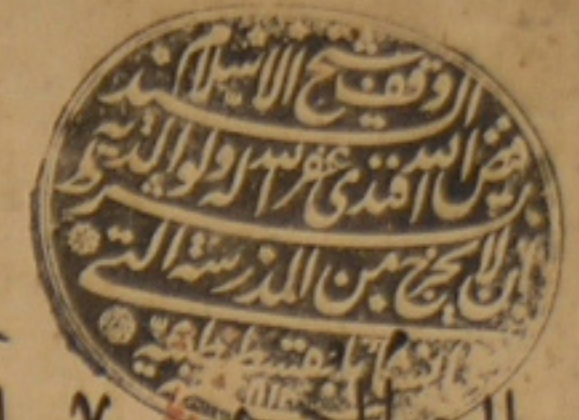 وقف شيخ الاسلام السيد
فيض الله افندى غفر الله له ولوالديه بشرط
ان لا يخرج من المدرسة التى
انشاها بقسطنطنية